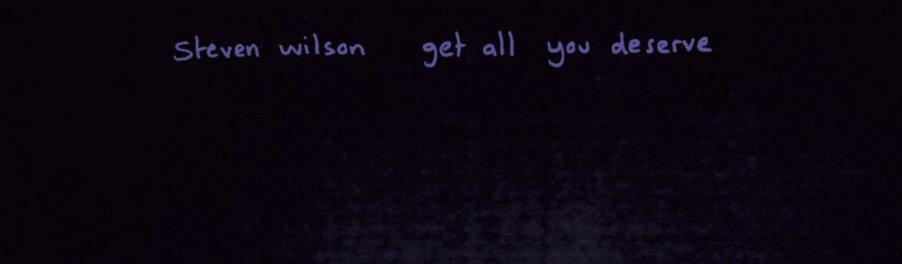 Steven wilson get all you deserve